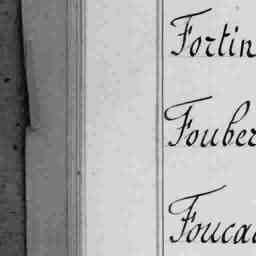 Fortin
Fouber
Fouca